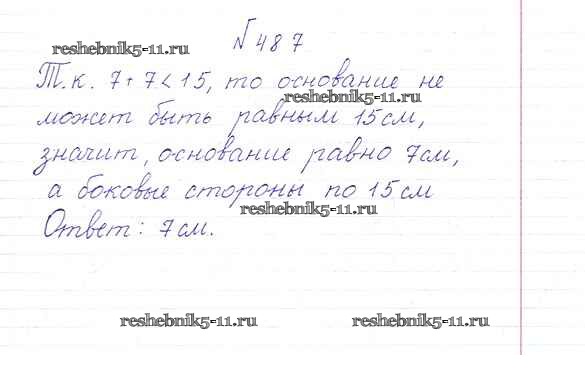 № 487
reshebnik5-11.ru
Т.к. 7+7<15, то основание не
reshebnik5-11.ru
может быть равным 15см,
значит, основание равно 7см,
а боковые стороны по 15см
reshebnik5-11.ru
Ответ: 7см.
reshebnik5-11.ru reshebnik5-11.ru